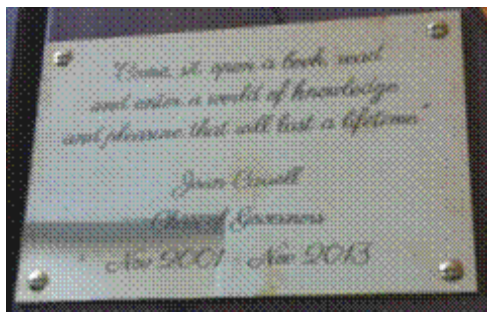 "Come, sit, open a book, read
and enter a world of knowledge
and pleasure that will last a lifetime"
Joan
Chair of Governors
Nov 2001 - Nov 2013